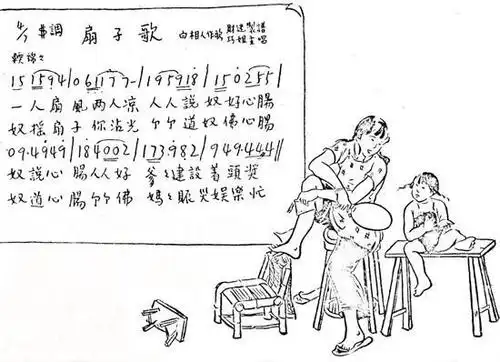 4/7 曲調 扇子歌 白相人作歌 財迷製譜 巧姐主唱
軟揚々
151594|061177-|195918|150255|
一人扇風两人凉 人人說奴好心腸
奴搖扇子你沾光 个个道奴佛心腸
09.4949|184002|173982|949.444‖
奴說心腸人人好 爹々建設着頭獎
奴道心腸个个佛 媽々賑災娛樂忙